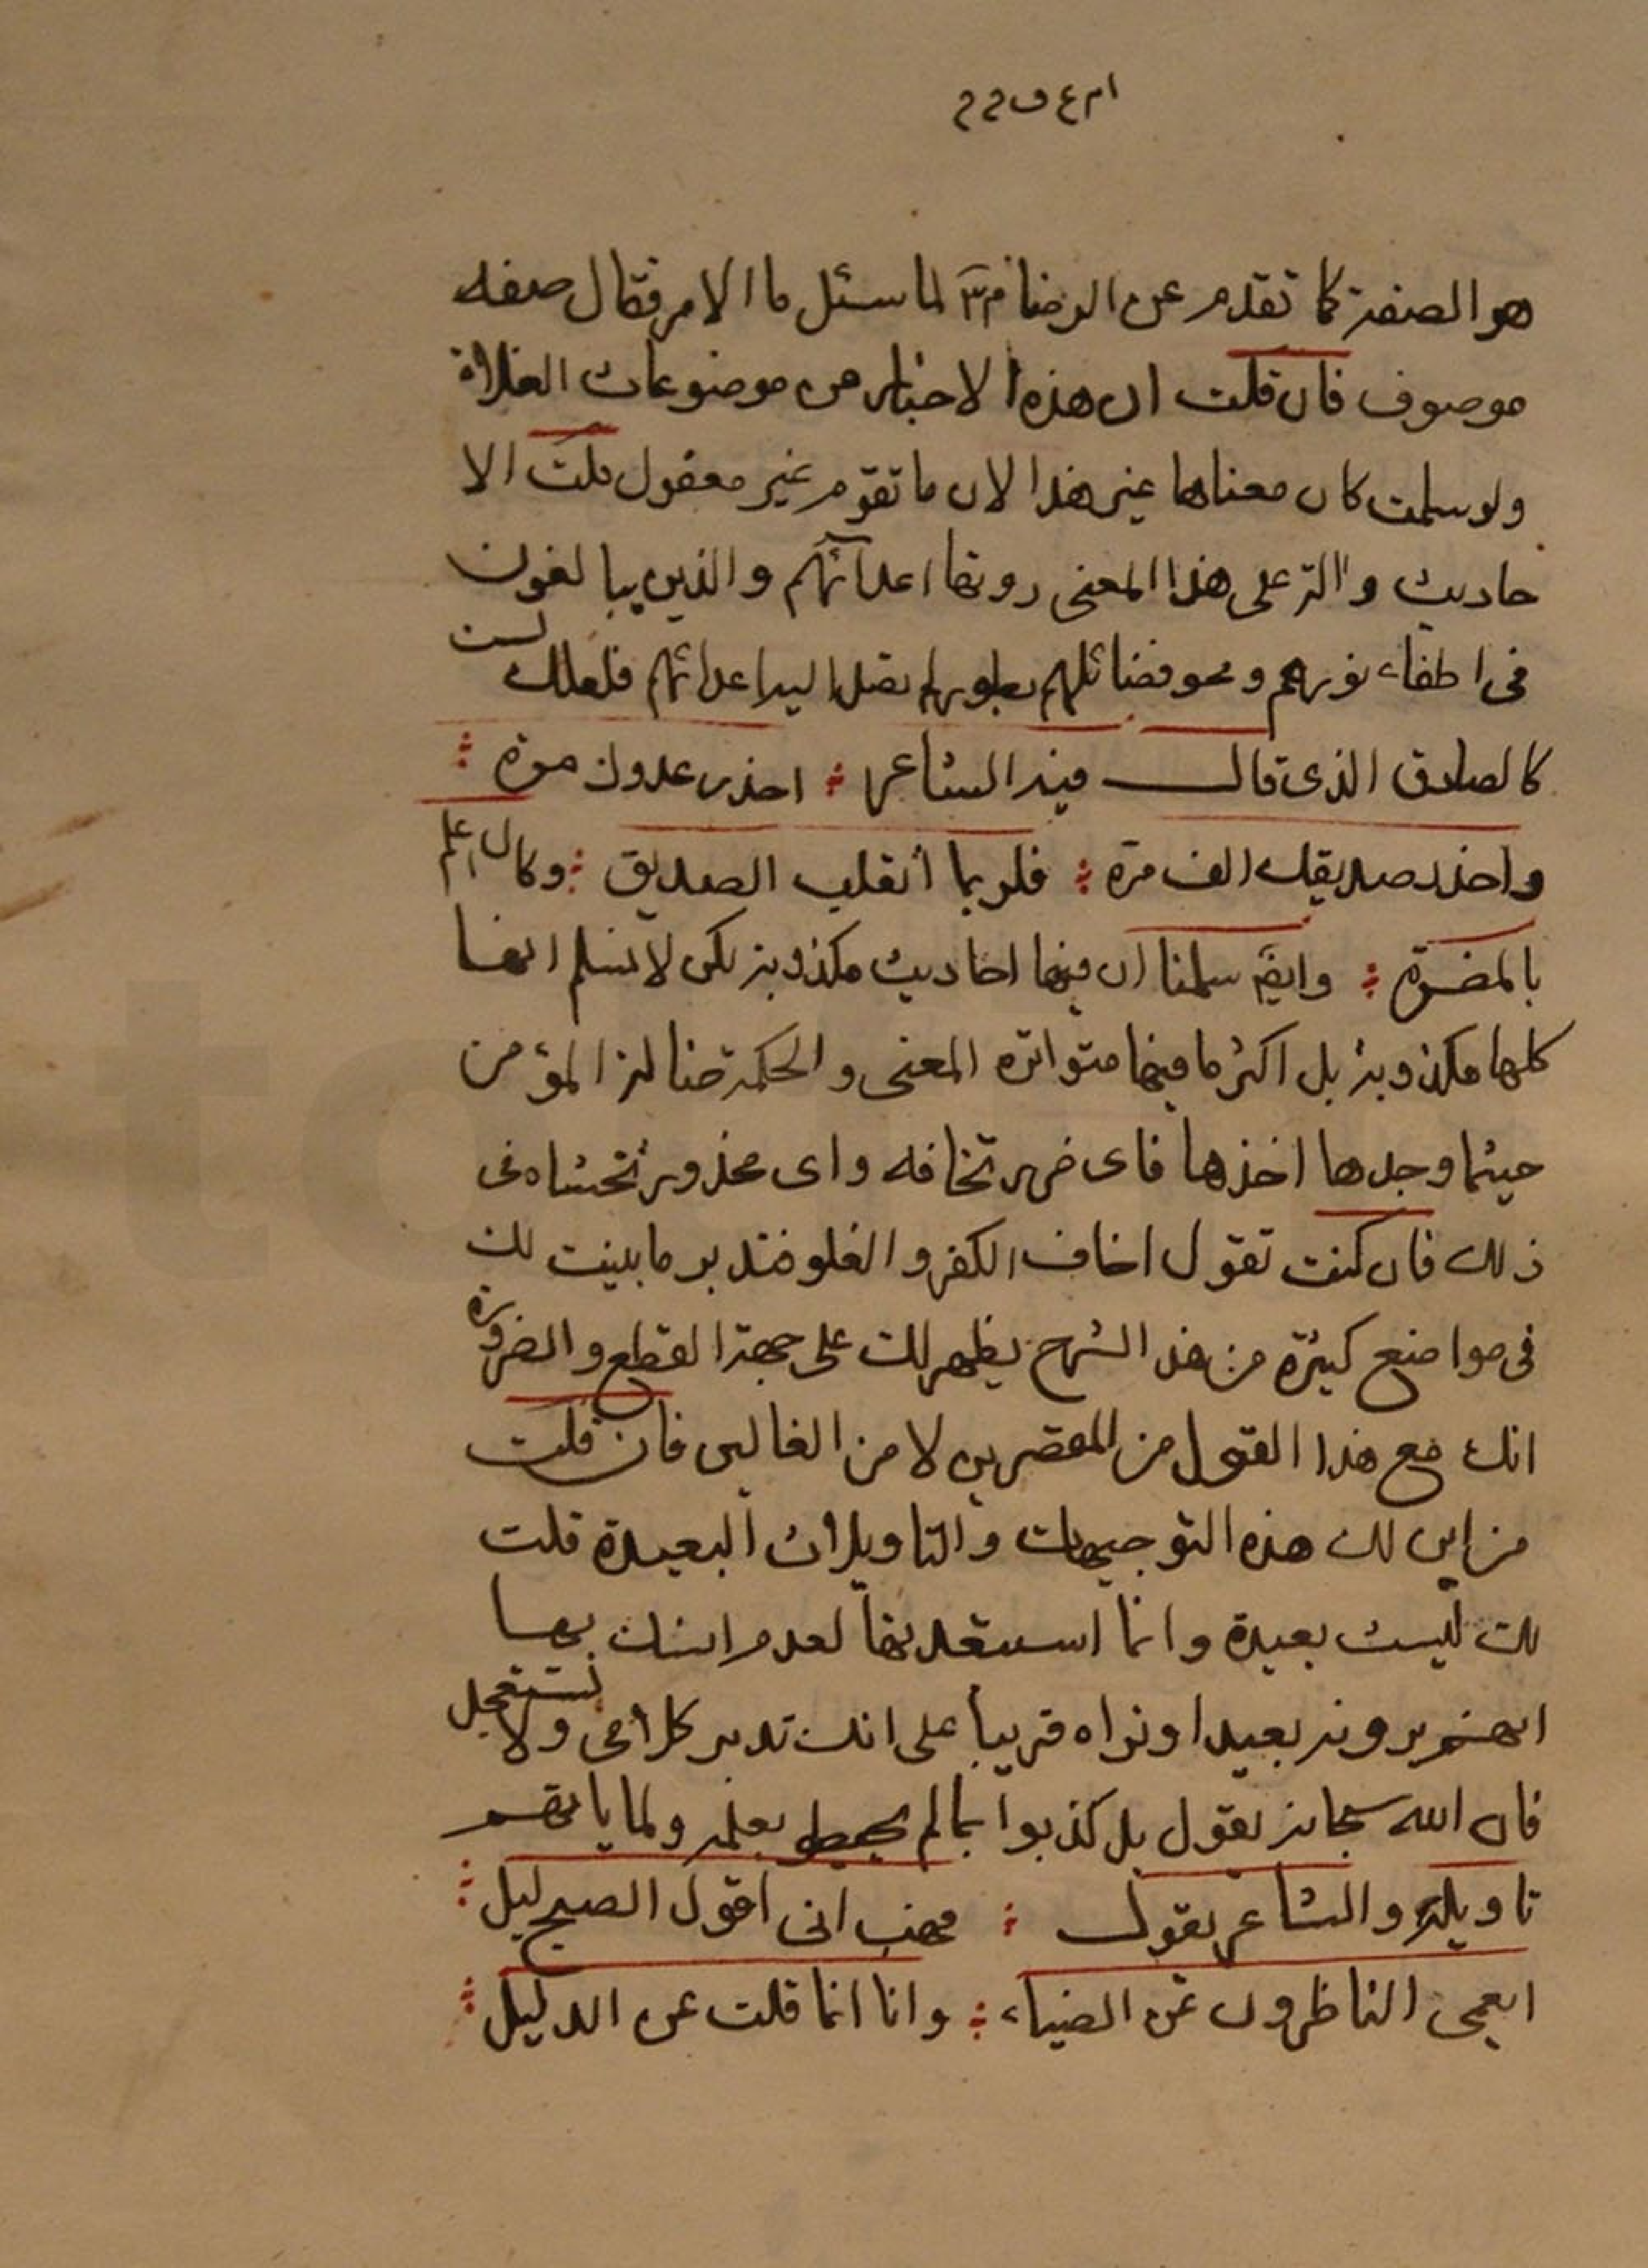 هو الصفة كما تقدم عن الرضا لما سئل ما الاسم فقال صفه
موصوف فان قلت ان هذه الاخبار من موضوعات الغلاة
ولو سلمت كان معناها غير هذا لان ما تقوم غير معقول قلت الا
حاديث والة على هذا المعنى روتها اعدائهم والذين يبالغون
فى اطفاء نورهم ومحو فضائلهم اعدائهم فلعلك لست
كالصادق الذى قال فيه الشاعر ؛ احذر عدوك مرة ؛
واحذر صديقك الف مرة ؛ فلربما انقلب الصديق ؛ وكان اعلم
بالمضرة ؛ وايضً سلمنا ان فيها احاديث مكذوبة لكن لا نسلم انها
كلها مكذوبة بل اكثر ما فيها متواتره المعنى والحكمة ضالة المؤمن
حيثما وجدها اخذها فاى ضرر تخافه واى محذور تخشاه فى
ذلك فان كنت تقول اخاف الكفر والغلو فتدبر ما بينت لك
فى مواضع كثيرة من هذا الشرح يظهر لك على جهة القطع والضرورة
انك مع هذا القول من المقصرين لا من الغالين فان قلت
من اين لك هذه التوجيهات والتاويلات البعيدة قلت
لك ليست بعيدة وانما استبعدتها لعدم انسك بها
انهم يرونه بعيدا ونراه قريبا على انك تدبر كلامى ولا تستعجل
فان الله سبحانه يقول بل كذبوا بما لم يحيطو بعلمه ولما ياتهم
تاويله والشاعر يقول ؛ فهب انى اقول الصبح ليل ؛
ايعمى الناظرون عن الضياء ؛ وانا انما قلت عن الدليل ؛